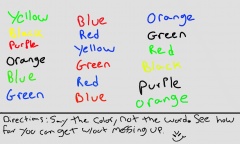 Yellow Blue Orange
Black Red Green
Purple Yellow Red
Orange Green Black
Blue Red Purple
Green Blue Orange
Directions: Say the Color, not the word. See how
far you can get w/out messing up.